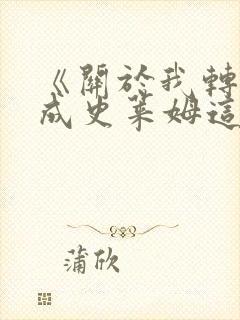 《關於我轉
成史萊姆這
蒲欣